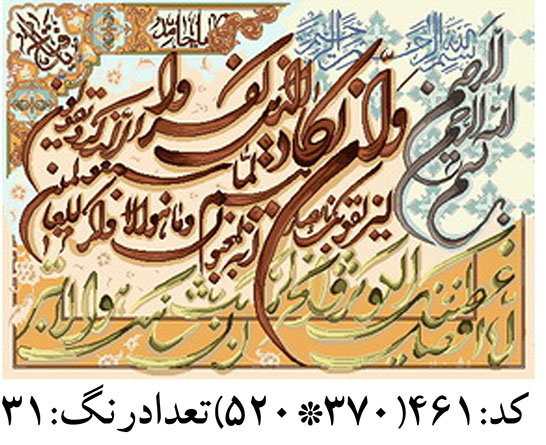 بسم الله الرحمن الرحیم
بسم الله الرحمن الرحیم
وان یکاد الذین کفروا
لیزلقونک بابصارهم لما سمعوا الذکر ویقولون
انه لمجنون وما هو الا ذکر للعالمین
انا اعطیناک الکوثر فصل لربک وانحر
ان شانئک هو الابتر
کد:۴۶۱(۳۷۰*۵۲۰)تعدادرنگ:۳۱